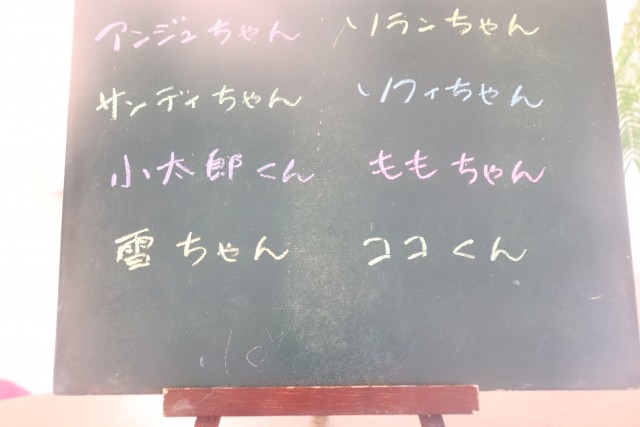 アンジュちゃん ソランちゃん
サンディちゃん ソフィちゃん
小太郎くん ももちゃん
雪ちゃん ココくん